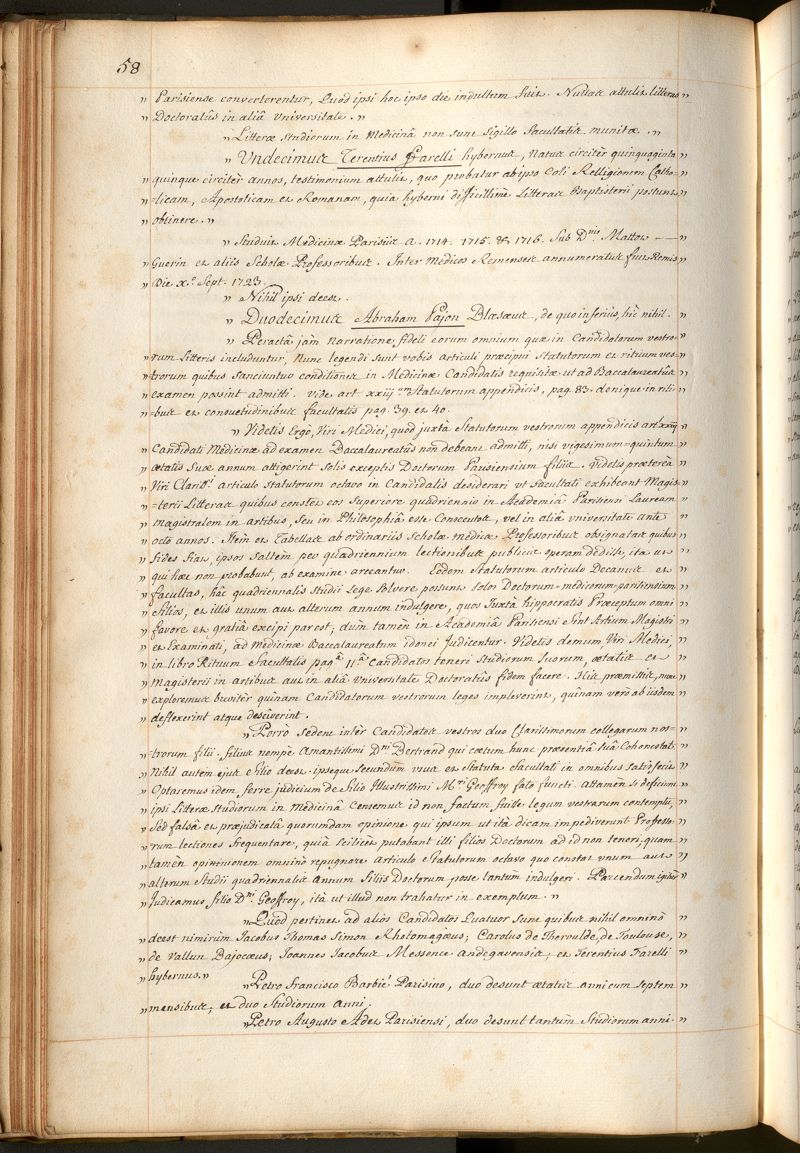 58
" Parisiense converterentur, Quod ipsi hoc ipso die indultum fuit. Nullas attulit litteras "
" Doctoralûs in aliâ Universitate. "
" Litteræ studiorum in Medicinâ non sunt sigillo facultatis munitæ. "
" Undecimus Terentius Farelli hybernus, Natus circitèr quinquaginta "
" quinque circitèr annos, testimonium attulit, quo probatur ab ipso Coli Relligionem Catho- "
" licam, Apostolicam et Romanam, quia hyberni difficillimè Litteras Baptisterii possunt "
" obtinere. "
" Studuit Medicinæ Parisiis a. 1714. 1715. & 1716. Sub Dnis. Mattot — "
" Guerin et aliis Scholæ Professoribus. Inter Medicos Remenses annumeratus fuit Remis "
" Die xa. Sept. 1723.
" Nihil ipsi deest.
" Duodecimus Abraham Pajon Blæsæus, de quo inferiùs, hîc nihil. "
" Peractâ jàm narratione, fideli eorum omnium quæ in Candidatorum vestro- "
" rum Litteris includuntur, Nunc legendi sunt vobis articuli præcipui Statutorum et rituum ves- "
" trorum quibus sanciuntur conditiones in Medicinæ Candidatis requisitæ ut ad Baccalaureatûs "
" examen possint admitti. vide art xxiij um Statutorum appendicis, pag. 83. denique in riti- "
" bus et consuetudinibus facultatis pag. 39. et 40.
" Videtis Ergò, Viri Medici, quod juxtà Statutorum vestrorum appendicis art xxiij "
" Candidati Medicinæ ad examen Baccalaureatûs non debeant admitti, nisi vigesimum=quintum "
" ætatis Suæ annum attigerint Solis exceptis Doctorum Parisiensium filiis. Videtis prætereà "
" Viri Clariss. articulo Statutorum octavo in Candidatis desiderari ut facultati exhibeant Magis "
" =terii Litteras quibus constet eos Superiore quadriennio in Academiâ Parisiensi Lauream "
" magistralem in artibus, seu in Philosophiâ esse Consecutos, vel in aliâ universitate ante "
" octo annos. Item et Tabellas ab ordinariis Scholæ medicæ Professoribus obsignatas quibus "
" fides fiat, ipsos saltem per quadriennium lectionibus publicis operam dedisse, ita ut "
" qui hæc non probabunt, ab examine arceantur. Eodem Statutorum articulo Decanus et "
" facultas, hâc quadriennalis Studii Lege Solvere possunt Solos Doctorum=medicorum=parisiensium "
" filios, et illis unum aut alterum annum indulgere, quos Juxtà hippocratis Præceptum omni "
" favore et gratiâ excipi par est; dum tamèn in Academiâ Parisiensi Sint Artium Magistri "
" et Examinati, ad Medicinæ Baccalaureatum idonei Judicentur. Videtis demum Viri Medici, "
" in libro Rituum facultatis pagâ. 11â. Candidatos teneri Studiorum Suorum, ætatis et "
" magisterii in artibus aut in aliâ Universitate Doctoratûs fidem facere. His præmissis, nunc "
" exploremus brevitèr quinam Candidatorum vestrorum leges impleverint, quinam verò ab iisdem "
" deflexerint atque desciverint.
" Porrò sedent intèr Candidatos vestros duo Clarissimorum collegarum nos= "
" =trorum filii. filius nempè amantissimi Dni Bertrand qui cœtum hunc præsentiâ suâ Cohonestat. "
" Nihil autem ejus filio deest. ipseque secundùm usus et Statuta facultati in omnibus satisfecit. "
" Optaremus idem, ferre judicium de filio Illustrissimi Mri Geoffroy fato functi. Attamèn si deficiunt "
" ipsi Litteræ Studiorum in Medicinâ Censemus id non factum, fuisse legum vestrarum contemptu, "
" Sed falsâ et præjudicatâ quorundam opinione qui ipsum ut itâ dicam impediverunt Professo= "
" rum lectiones frequentare, quiâ scilicèt putabant illi filios Doctorum ad id non teneri; quam "
" tamèn opinionem omninò repugnare articulo Statutorum octavo quo constat unum aut "
" alterum Studii quadriennalis annum filiis Doctorum posse tantùm indulgeri. Parcendum igitur "
" Judicamus filio Dni. Geoffroy, itâ ut illud non trahatur in exemplum. "
" Quod pertinet ad alios Candidatos Quatuor sunt quibus nihil omninò "
" deest nimirùm Jacobus Thomas Simon Rhotomagæus; Carolus de Theroulde, de Toulouse, "
" de Vallun Bajocæus; Joannes Jacobus Messence andegavensis, et Terentius Farelli "
" hybernus. "
" Petro Francisco Barbié Parisino, duo desunt ætatis anni cum septem "
" mensibus, et duo Studiorum anni.
" Petro Augusto Adet Parisiensi, duo desunt tantùm Studiorum anni. "